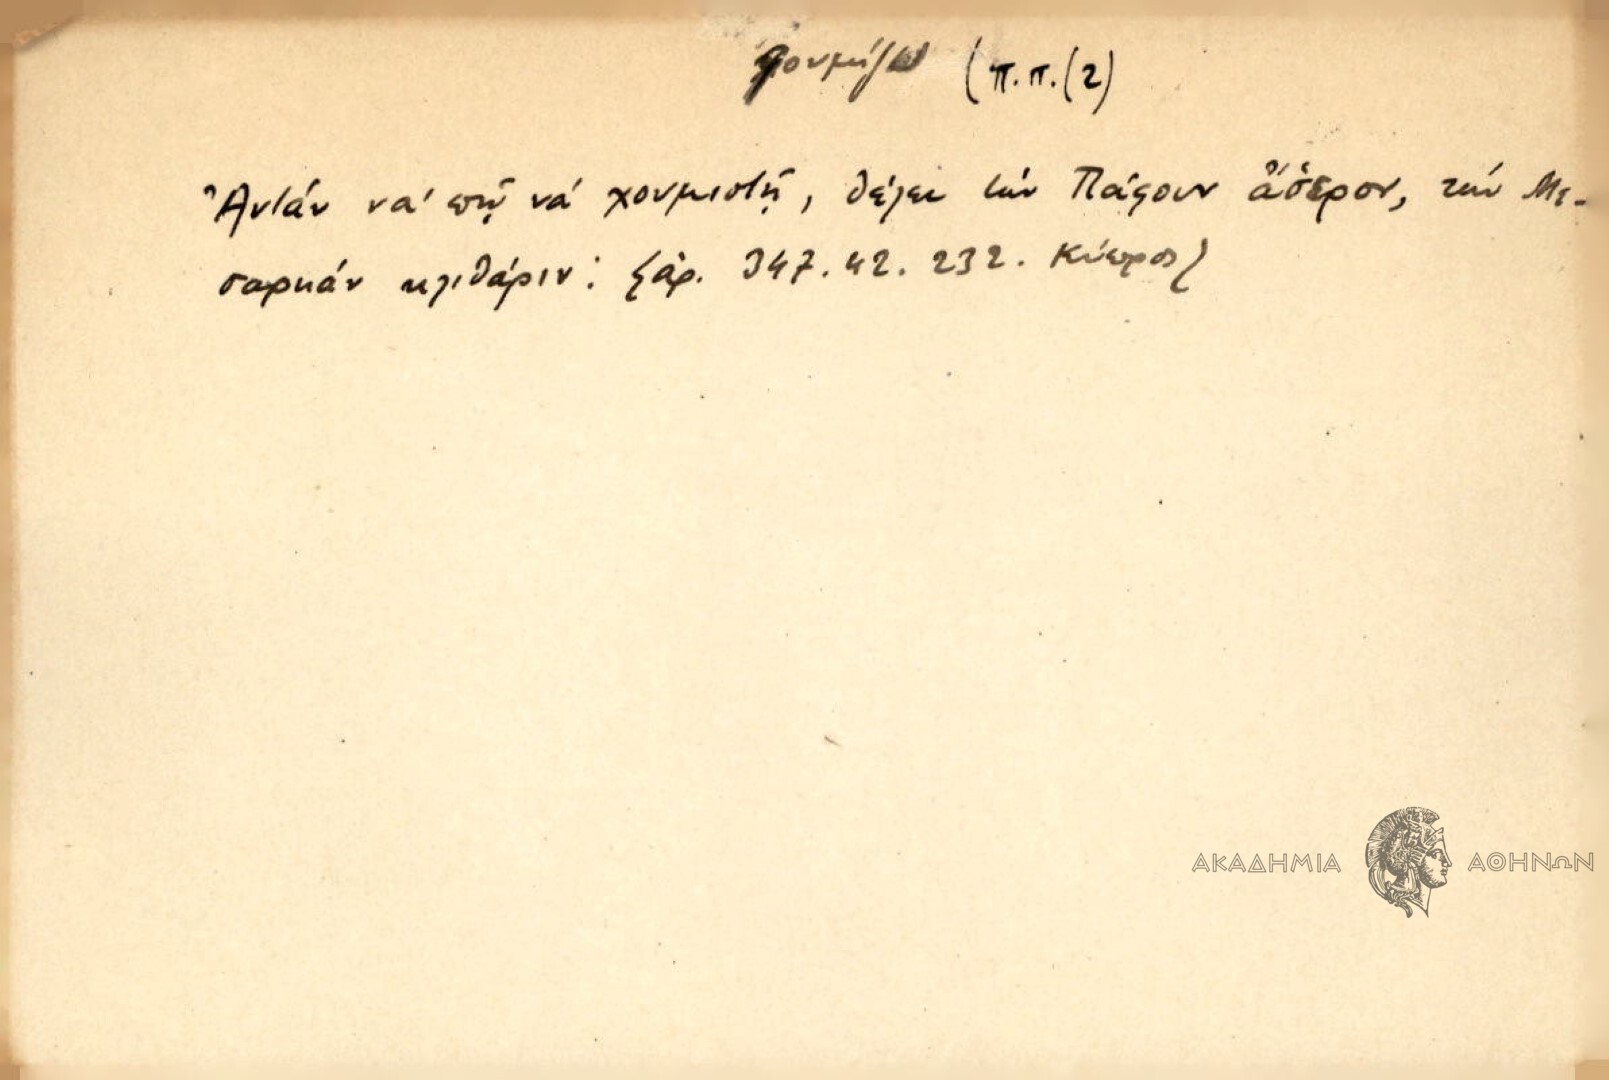 χουμίζω (π.π.(2)
Ἀντάν νά 'πῇ νά χουμιστῇ, θέλει τήν Πάφουν ἄδερον, τήν Με-
σαρκάν κλιθάριν: ξάρ. 347.42.232. Κύπρος}
ΑΚΑΔΗΜΙΑ ΑΘΗΝΩΝ